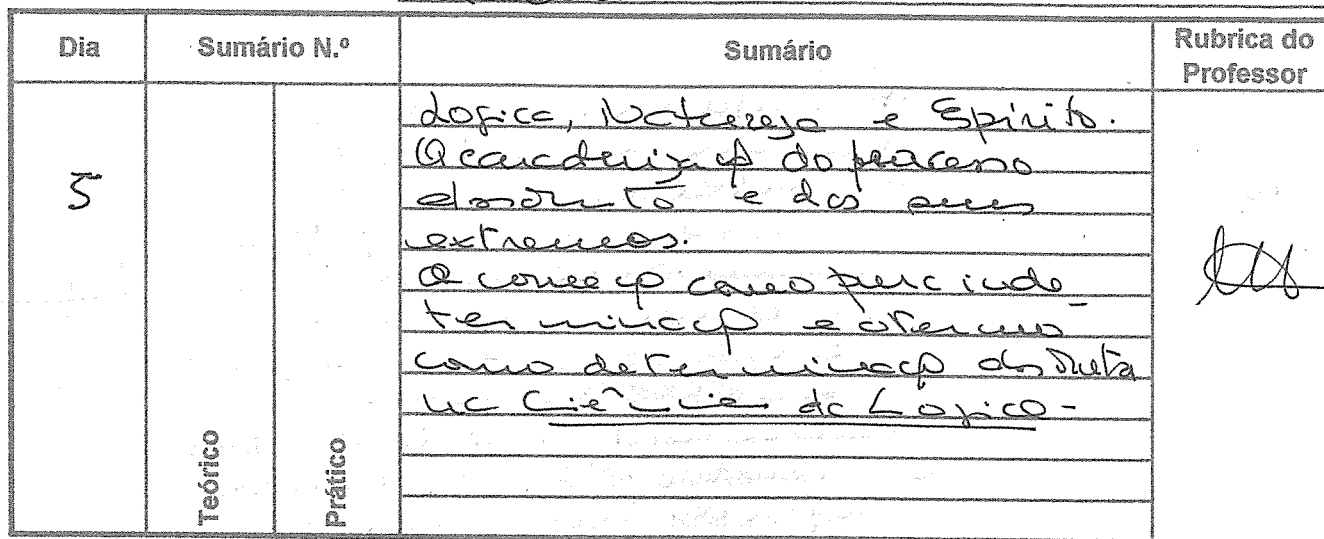 Dia Sumário N.º Sumário Rubrica do Professor
5
Teórico Prático
Logica, Natureza e Espírito.
A caracterização do processo
absoluto e dos seus
extremos.
O começo como pura inde-
terminação e o termo
como determinação absoluta
na Ciência da Lógica-